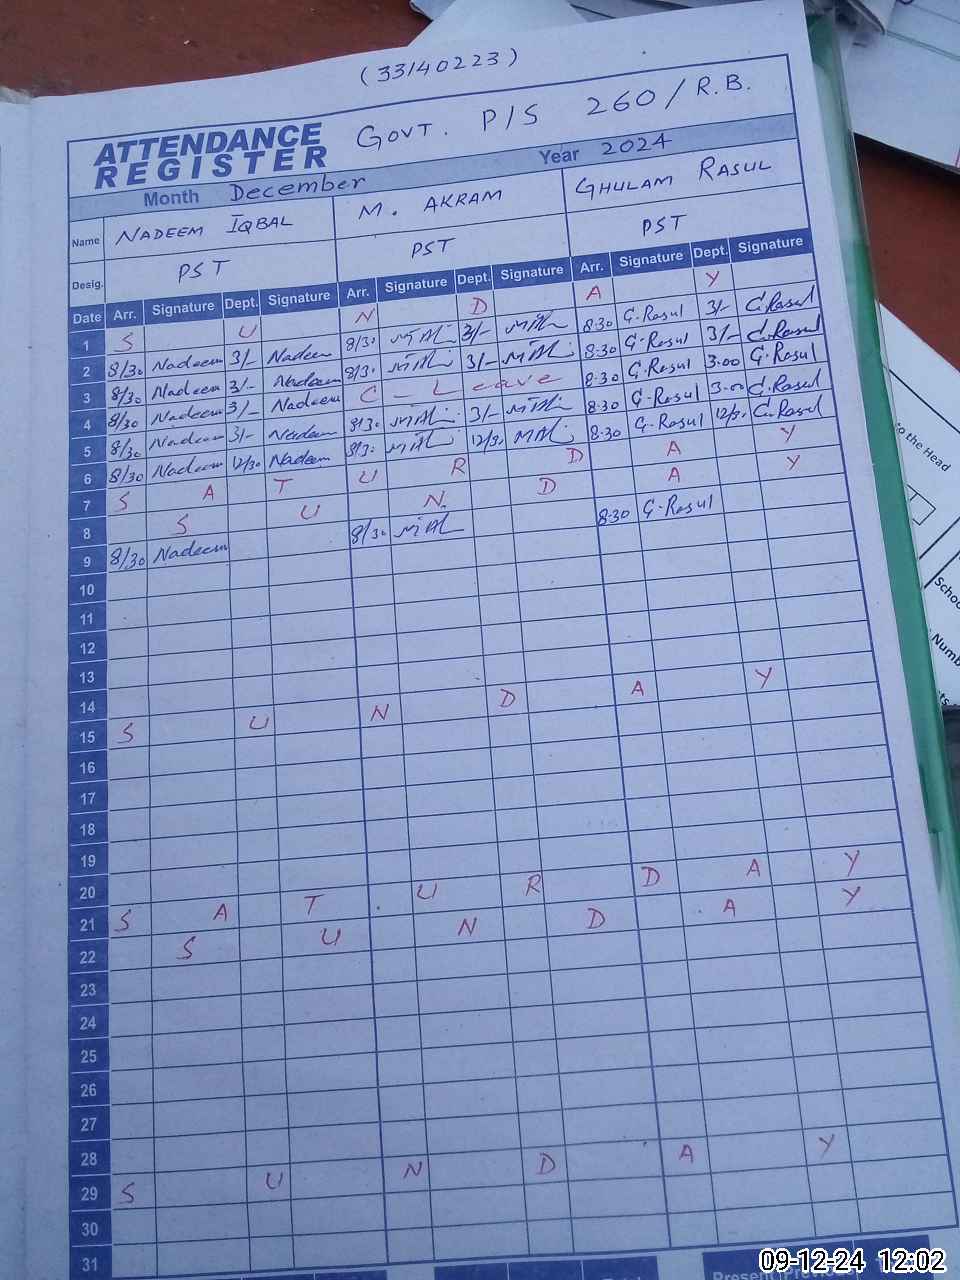 (33140223)
ATTENDANCE REGISTER GOVT. P/S 260/R.B.
Month December Year 2024
Name NADEEM IQBAL M. AKRAM GHULAM RASUL
Desig. PST PST PST
Date Arr. Signature Dept. Signature Arr. Signature Dept. Signature Arr. Signature Dept. Signature
1 S U N D A Y
2 8/30 Nadeem 3/- Nadeem 8/30 3/- 8:30 G.Rasul 3/- G.Rasul
3 8/30 Nadeem 3/- Nadeem 8/30 3/- 8:30 G.Rasul 3/- G.Rasul
4 8/30 Nadeem 3/- Nadeem C - Leave 8:30 G.Rasul 3:00 G.Rasul
5 8/30 Nadeem 3/- Nadeem 8/30 3/- 8:30 G.Rasul 3:00 G.Rasul
6 8/30 Nadeem 12/30 Nadeem 8/30 12/30 8:30 G.Rasul 12/30 G.Rasul
7 S A T U R D A Y
8 S U N D A Y
9 8/30 Nadeem 8/30 8:30 G.Rasul
10
11
12
13
14
15 S U N D A Y
16
17
18
19
20
21 S A T U R D A Y
22 S U N D A Y
23
24
25
26
27
28
29 S U N D A Y
30
31
to the Head
Schoo
Numb
09-12-24 12:02